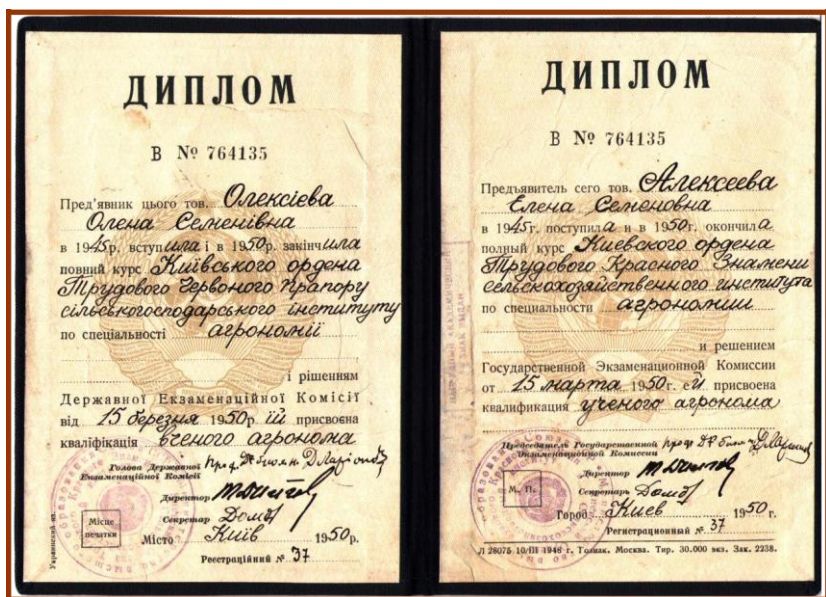 ДИПЛОМ
В № 764135
Пред'явник цього тов. Олексієва
Олена Семенівна
в 1945р. вступила і в 1950р. закінчила
повний курс Київського ордена
Трудового Червоного Прапору
сільськогосподарського інституту
по спеціальності агрономії
і рішенням
Державної Екзаменаційної Комісії
від 15 березня 1950р. їй присвоєна
кваліфікація вченого агронома
Голова Державної
Екзаменаційної Комісії
Директор
Секретар
Місце
печатки
Місто Київ 1950р.
Реєстраційний № 37
Украинский яз.
ДИПЛОМ
В № 764135
Предъявитель сего тов. Алексеева
Елена Семеновна
в 1945г. поступила и в 1950г. окончила
полный курс Киевского ордена
Трудового Красного Знамени
сельскохозяйственного института
по специальности агрономии
и решением
Государственной Экзаменационной Комиссии
от 15 марта 1950г. ей присвоена
квалификация ученого агронома
Председатель Государственной
Экзаменационной Комиссии
Директор
Секретарь
М. П.
Город Киев 1950г.
Регистрационный № 37
Л 28075 10/III 1948 г. Гознак. Москва. Тир. 30.000 экз. Зак. 2238.